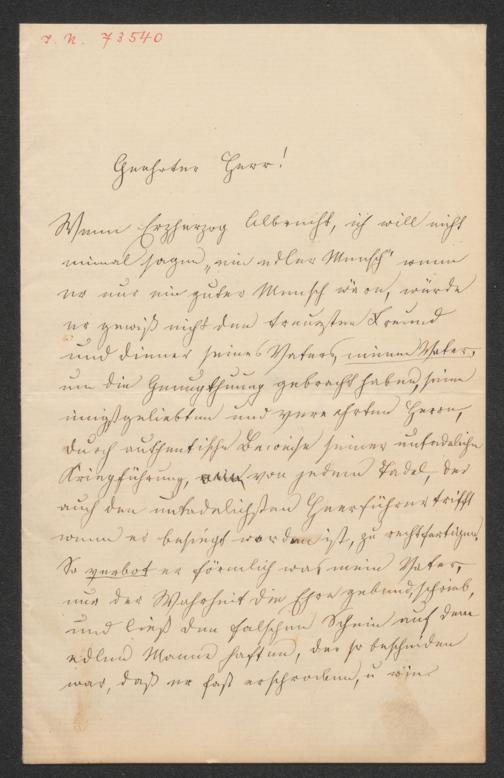 I. N. 73540
Geehrter Herr!
Wenn Erzherzog Albrecht, ich will nicht
einmal sagen „ein edler Mensch" wenn
er nur ein guter Mensch wäre, würde
er gewiß nicht den treuesten Freund
und Diener seines Vaters, meinen Vater,
um die Genugthuung gebracht haben, seinen
innigstgeliebten und verehrten Herrn,
durch authentische Beweise seiner untadeligen
Kriegführung, von jedem Tadel, der
auch den untadelichsten Heerführer trifft
wenn er besiegt worden ist, zu rechtfertigen.
So verbot er förmlich was mein Vater,
nur der Wahrheit die Ehre gebend, schrieb,
und ließ den falschen Schein auf dem
edlen Manne haften, der so bescheiden
war, daß er fast erschrocken, u wie